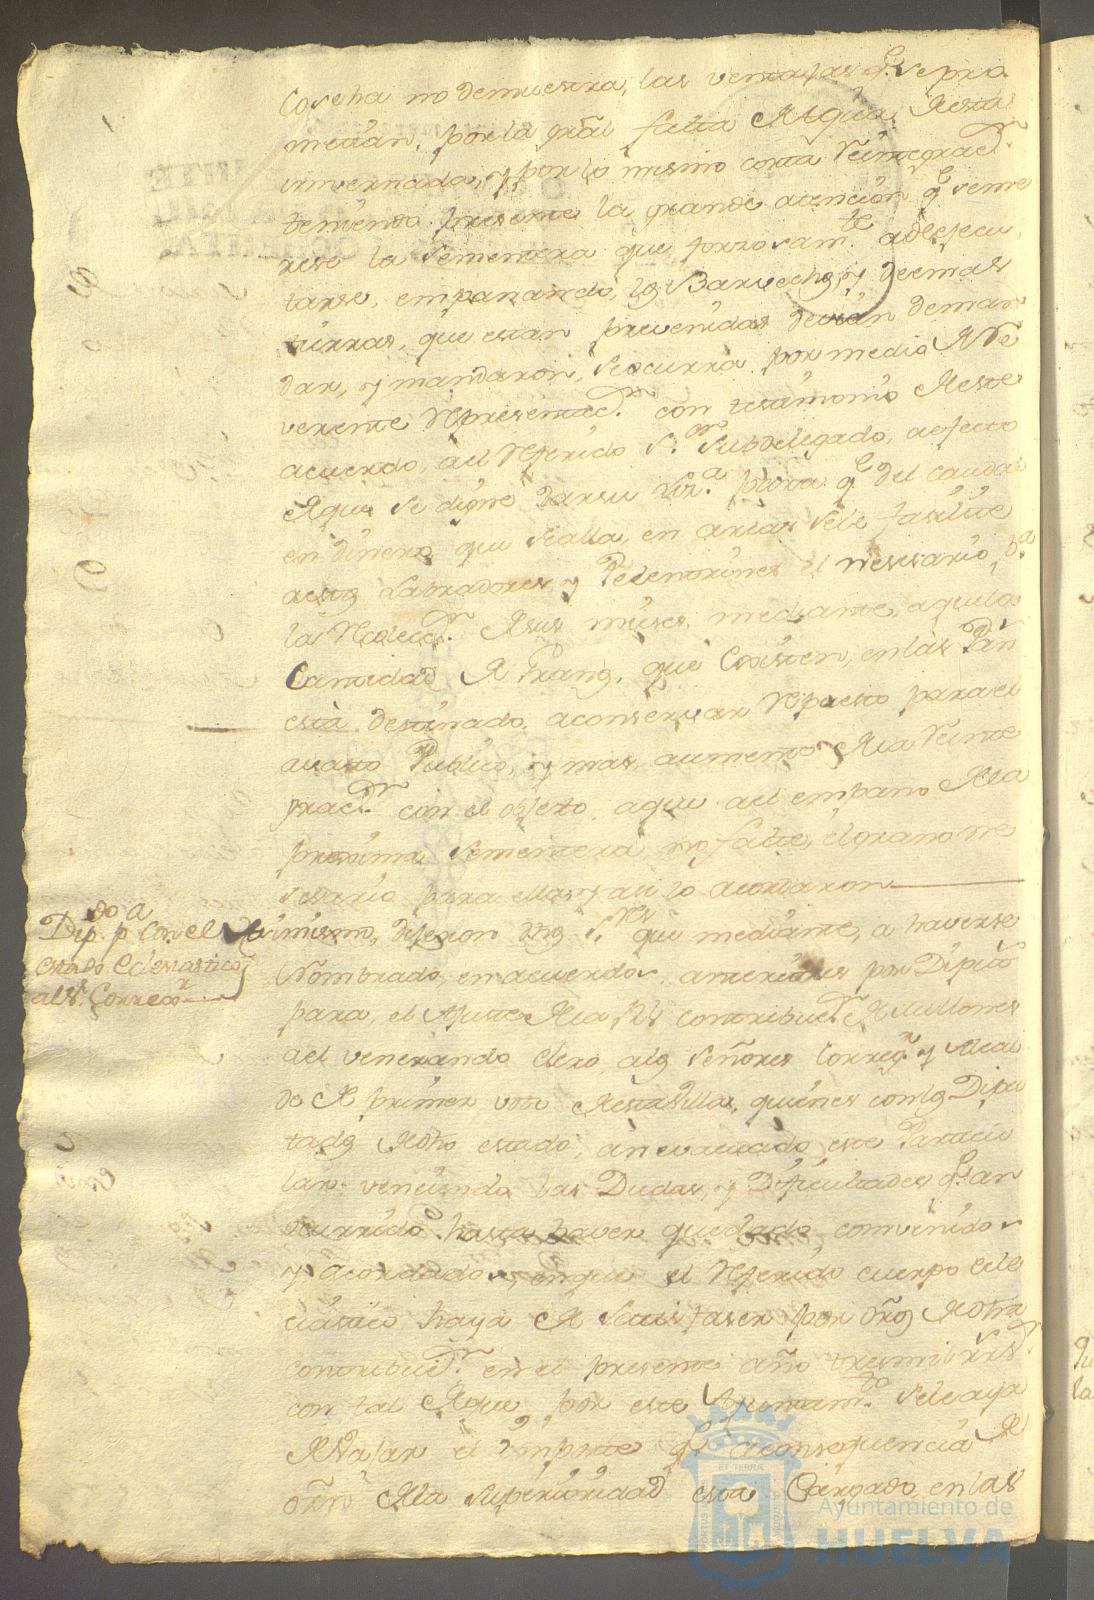 Cosecha no demuestra, las ventajas q.e se pro
metian, por la gral falta de Agua, de esta
invernada, y por lo mismo corta Reintegrac.n
teniendo presente la grande atencion q.e se me
rese la Sementera que forzosam.te a de ejecu
tarse, empanando, los Barvechos, y demas
tierras, que estan prevenidas devian de man
dar, y mandaron, se ocurra por medio de Re
verente Representac.n con testimonio de este
acuerdo, al Referido S.or Subdelegado, a efecto
de que se digne dar su
en dinero que se alla, en arcas se le fasilite
a estos Labradores, y Pelentrines el nesesario, p.a
la Recolecc.n de sus mieses, mediante, a que la
Cantidad de Granos, que Existen, en las Pan
esta destinado, a conservar Repuesto para el
avasto Publico, y mas aumento de la Reinte
grac.n con el objeto, a que al empano de la
proxima Sementera, no falte, el grano ne
sesario para ellas, y asi lo acordaron
Dip.do p.a Con el
estado Eclesiastico
al S.r Correg.r
Asimismo, dijeron dhos S.res que mediante, a haverse
Nombrado, en acuerdo, anteriores por Diputo
para, el Ajuste de la contribuc.n de Millones
del venerando Clero, a los Señores Correg.r y Alcal
de de primer voto de esta Villa, quienes con los Dipu
tados de dho estado, an evacuado este Particu
lar venciendo las Dudas, y Dificultades q.e an
ocurrido hasta haver quedado, convenido
y acordado, en que el Referido cuerpo Ecle
ciastico haya de Satisfaser por dhos
contribuc.n en el presente año tres mil r.s
con tal de que por este Ayuntam.to se le aya
de Vajar el importe q.e a consequencia de
orn de la Superioridad esta Cargado en las
Ayuntamiento de
HUELVA